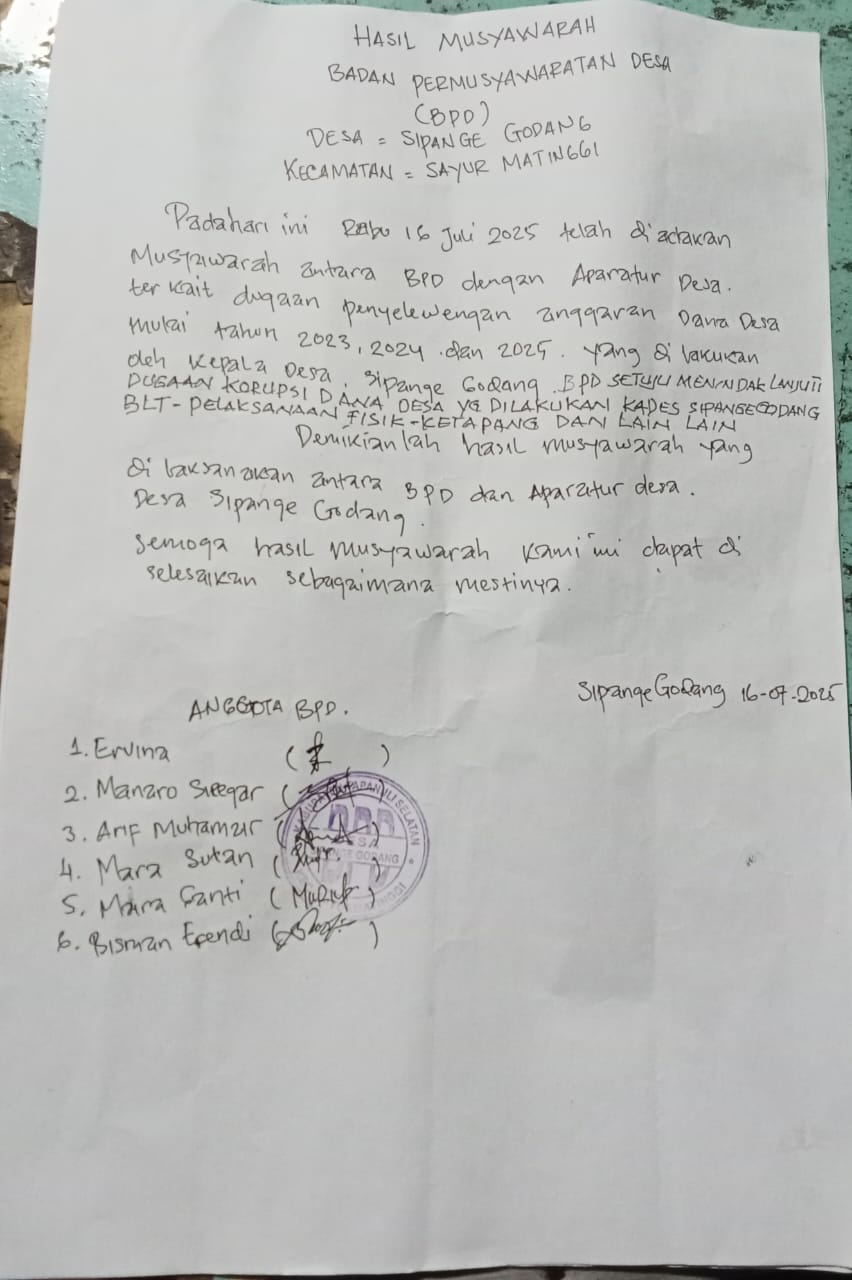 HASIL MUSYAWARAH
BADAN PERMUSYAWARATAN DESA
(BPD)
DESA = SIPANGE GODANG
KECAMATAN = SAYUR MATINGGI
Padahari ini Rabu 16 Juli 2025 telah di adakan
Musyawarah antara BPD dengan Aparatur Desa.
ter kait dugaan penyelewengan anggaran Dana Desa
mulai tahun 2023, 2024 dan 2025. yang di lakukan
oleh Kepala Desa. Sipange Godang. BPD SETUJU MENINDAK LANJUTI
DUGAAN KORUPSI DANA DESA YG DILAKUKAN KADES SIPANGE GODANG
BLT - PELAKSANAAN FISIK - KETAPANG DAN LAIN LAIN
Demikianlah hasil musyawarah yang
di laksanakan antara BPD dan Aparatur desa.
Desa Sipange Godang.
Semoga hasil musyawarah kami ini dapat di
selesaikan sebagaimana mestinya.
Sipange Godang 16-07-2025
ANGGOTA BPD.
1. Ervina ( )
2. Manaro Siregar ( )
3. Arif Muhamur ( )
4. Mara Sutan ( )
5. Mara Ganti ( )
6. Bisman Efendi ( )
TAPANULI SELATAN
GODANG